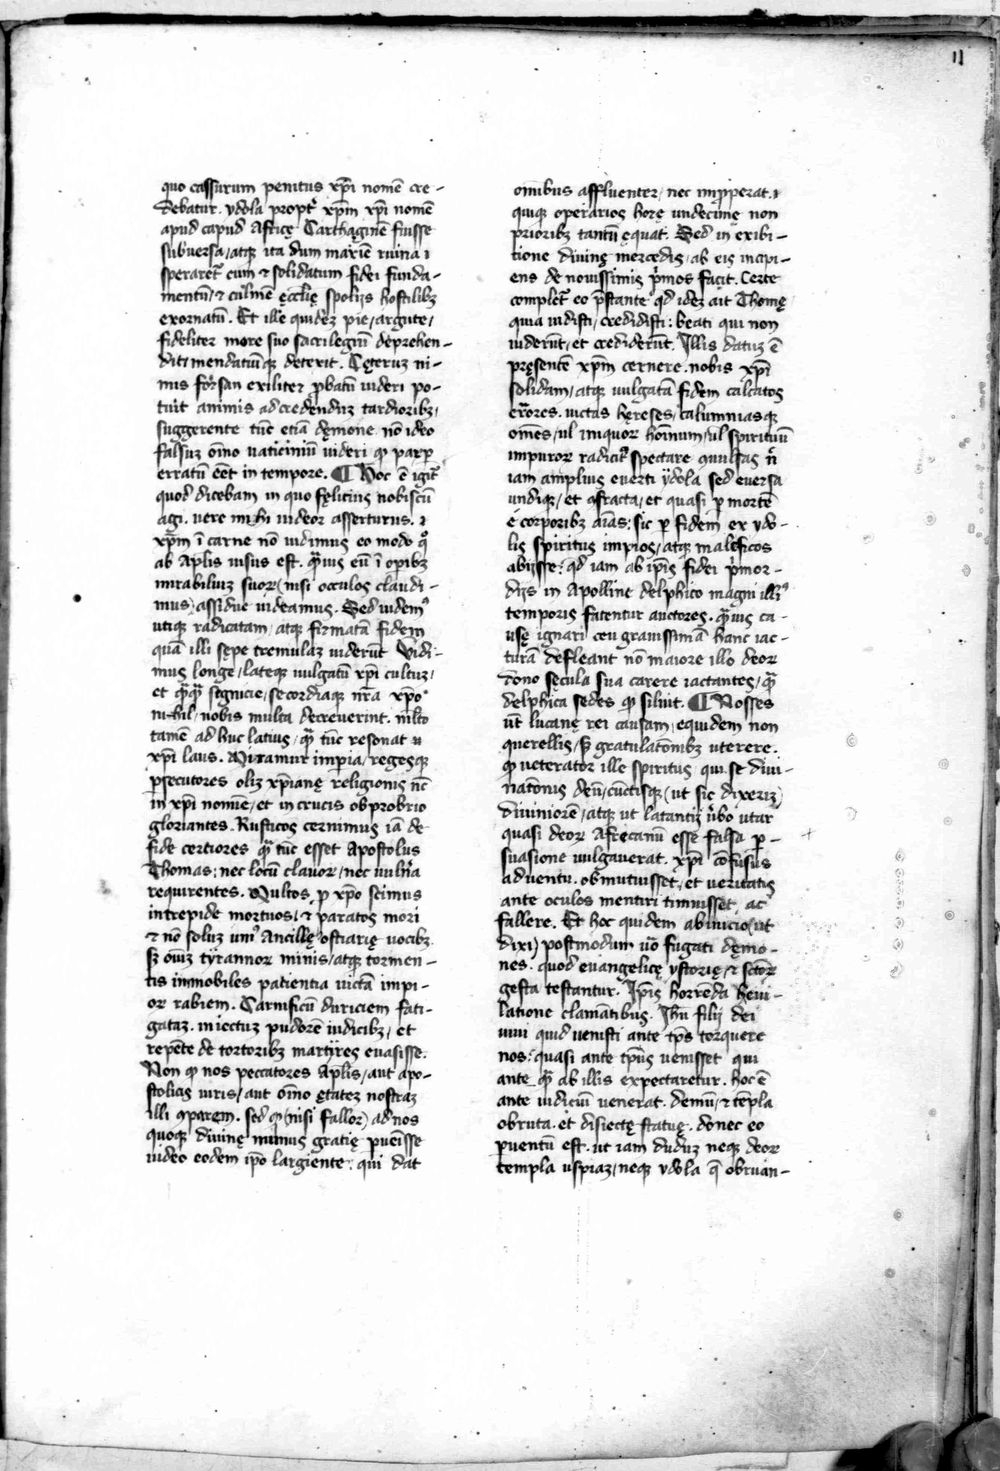 11
quo cassurum penitus xp̄i nomē cre-
debatur. ydola propt̄ xp̄m xp̄i nomē
apud capud Africę Carthaginē fuisse
subuersa, atq; ita dum maxīe ruina ı
speraret̄ eum ⁊ solidatum fidei funda-
mentū, ⁊ culmē eccl̄ię spolijs hostilibꝫ
exornatū. Et ille quidēꝫ pie, argute,
fideliter more suo sacrilegiū deprehen-
dit, mendatiūq; detexit. Cęteruꝫ ni-
mis forsan exiliter ꝓbatū uideri po-
tuit animis ad credenduꝫ tardioribꝫ,
suggerente tūc etiā dęmone. nō ideo
falsuꝫ oīno uaticiniū uideri ꝙ parꝑ
erratū eēt in tempore. ¶ Hoc ē igit̄
quod dicebam in quo fęlitius nobiscū
agi. uere mihi uideor asserturus. ı
xp̄m ī carne nō uidimus eo modo q̊
ab Apl̄is uisus est. q̄uis eū ī opibꝫ
mirabiliuꝫ suoꝝ (nisi oculos claudi-
mus) assidue uideamus. Sed uidemꝰ
utiq; radicatam, atq; firmatā fidem
quā illi sępe tremulaꝫ uiderūt. Vidi-
mus longe, lateq; uulgatū xp̄i cultuꝫ,
et q̄q̄ segnicie, secordiaq; nr̄a xp̄o
nihil, nobis multa decreuerint. mlto
tamē ad huc latius, q̄ tūc resonat
xp̄i laus. Miramur imperia, regesq;
ꝑsecutores oliꝫ xp̄ianę religionis nc̄
in xp̄i nomīe, et in crucis obprobrio
gloriantes. Rusticos cernimus iā de
fide certiores q̄ tūc esset Apostolus
Thomas; nec locū clauoꝝ, nec uuln̄a
requirentes. Multos ꝓ xp̄o scimus
intrepide mortuos, ⁊ paratos mori
⁊ nō soluꝫ uniꝰ Ancillę ostiarię uocibꝫ
sꝫ oīuꝫ tyrannoꝝ minis, atq; tormen-
tis immobiles patientia uictā impi-
oꝝ rabiem. Carnificū duriciem fati-
gataꝫ. iniectuꝫ pudorē iudicibꝫ, et
repēte de tortoribꝫ martyres euasisse.
Non ꝙ nos peccatores Apl̄is, aut apo-
stolicis uiris, aut oīno ętateꝫ nostraꝫ
illi ꝯparem. sed ꝙ (nisi fallor) ad nos
quoq; diuinę munus gratię puēisse
uideo eodem ip̄o largiente: qui dat
omnibus affluenter, nec imꝓperat. ı
quiq; operarios horę undecimę non
prioribꝫ tantū ęquat. Sed in exibi-
tione diuinę mercedis, ab eis incipi-
ens de nouissimis p̄mos facit. Certe
complet̄ eo p̄stante qd̄ ideꝫ ait Thomę
quia uidisti, credidisti: beati qui non
uiderūt, et crediderūt. Illis datuꝫ ē
pręsentē xp̄m cernere. nobis xp̄i
solidam, atq; uulgatā fidem calcatos
errores. uictas hęreses, calumniasq;
omēs, ul iniquoꝝ hoīnum, ul spirituū
impuroꝝ radicit̄ spectare ꝯuulsas n̄
iam amplius euerti ydola sed euersa
undiq;, et ꝯfracta, et quasi ꝑ mortē
e corporibꝫ aīas: sic ꝑ fidem ex ydo-
lis spiritus impios, atq; maleficos
abijsse: qd̄ iam ab ip̄is fidei p̄mor-
dijs in Apolline delphico magni illiꝰ
temporis fatentur auctores. q̄uis ca-
usę ignari ceu grauissimā hanc iac-
turā defleant nō maiore illo deoꝝ
dono sęcula sua carere iactantes, q̄
delphica sedes ꝙ siluit. ¶ Nosses
ūt lucanę rei causam, equidem non
querellis, sꝫ gratulatōnibꝫ uterere.
ꝙ ueterator ille spiritus qui se diui-
natōnis deū, cuctisq; (ut sic dixeriꝫ)
diuiniorē, atq; ut latantij u̇bo utar
quasi deoꝝ Africanū esse falsa ꝑ-
suasione uulgauerat. xp̄i cōfusus
aduentu. obmutuisset, et ueritatis
ante oculos mentiri timuisset, ac
fallere. Et hoc quidem ab inicio (ut
dixi) postmodum u̇o fugati dęmo-
nes. quod euangelicę ystorię, ⁊ sctōꝝ
gesta testantur. Ip̄is horrēda heiu-
latione clamātibus. Ih̄u filij dei
uiui quid uenisti ante tp̄s torquere
nos: quasi ante tp̄us uenisset qui
ante q̄ ab illis expectaretur. hoc ē
ante iudiciū uenerat. demū, ⁊ tēpla
obruta. et disiectę statuę. donec eo
ꝑuentū est. ut iam duduꝫ neq; deoꝝ
templa uspiaꝫ, neq; ydola q̄ obruan-